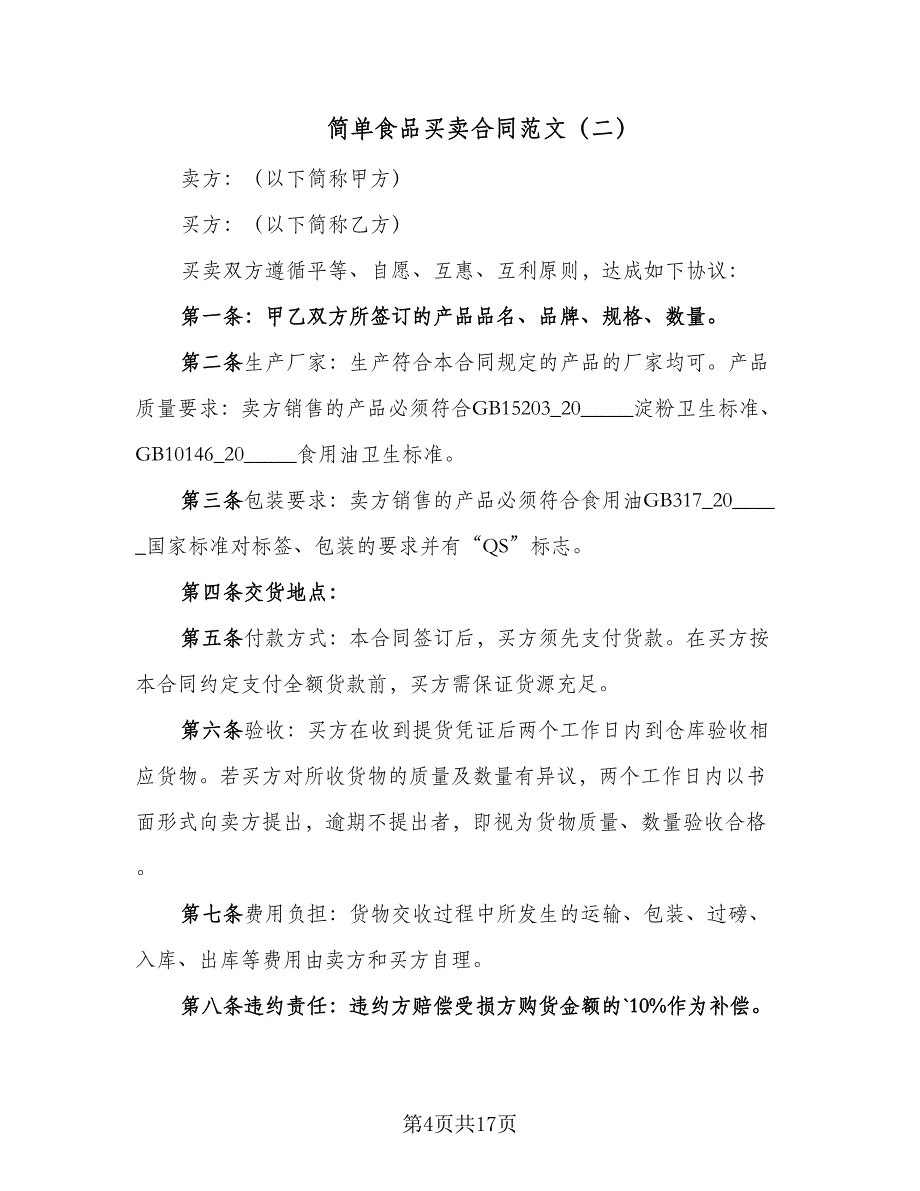 简单食品买卖合同范文（二）
卖方：（以下简称甲方）
买方：（以下简称乙方）
买卖双方遵循平等、自愿、互惠、互利原则，达成如下协议：
第一条：甲乙双方所签订的产品品名、品牌、规格、数量。
第二条生产厂家：生产符合本合同规定的产品的厂家均可。产品
质量要求：卖方销售的产品必须符合GB15203_20_____淀粉卫生标准、
GB10146_20_____食用油卫生标准。
第三条包装要求：卖方销售的产品必须符合食用油GB317_20____
_国家标准对标签、包装的要求并有“QS”标志。
第四条交货地点：
第五条付款方式：本合同签订后，买方须先支付货款。在买方按
本合同约定支付全额货款前，买方需保证货源充足。
第六条验收：买方在收到提货凭证后两个工作日内到仓库验收相
应货物。若买方对所收货物的质量及数量有异议，两个工作日内以书
面形式向卖方提出，逾期不提出者，即视为货物质量、数量验收合格
。
第七条费用负担：货物交收过程中所发生的运输、包装、过磅、
入库、出库等费用由卖方和买方自理。
第八条违约责任：违约方赔偿受损方购货金额的`10%作为补偿。
第4页共17页